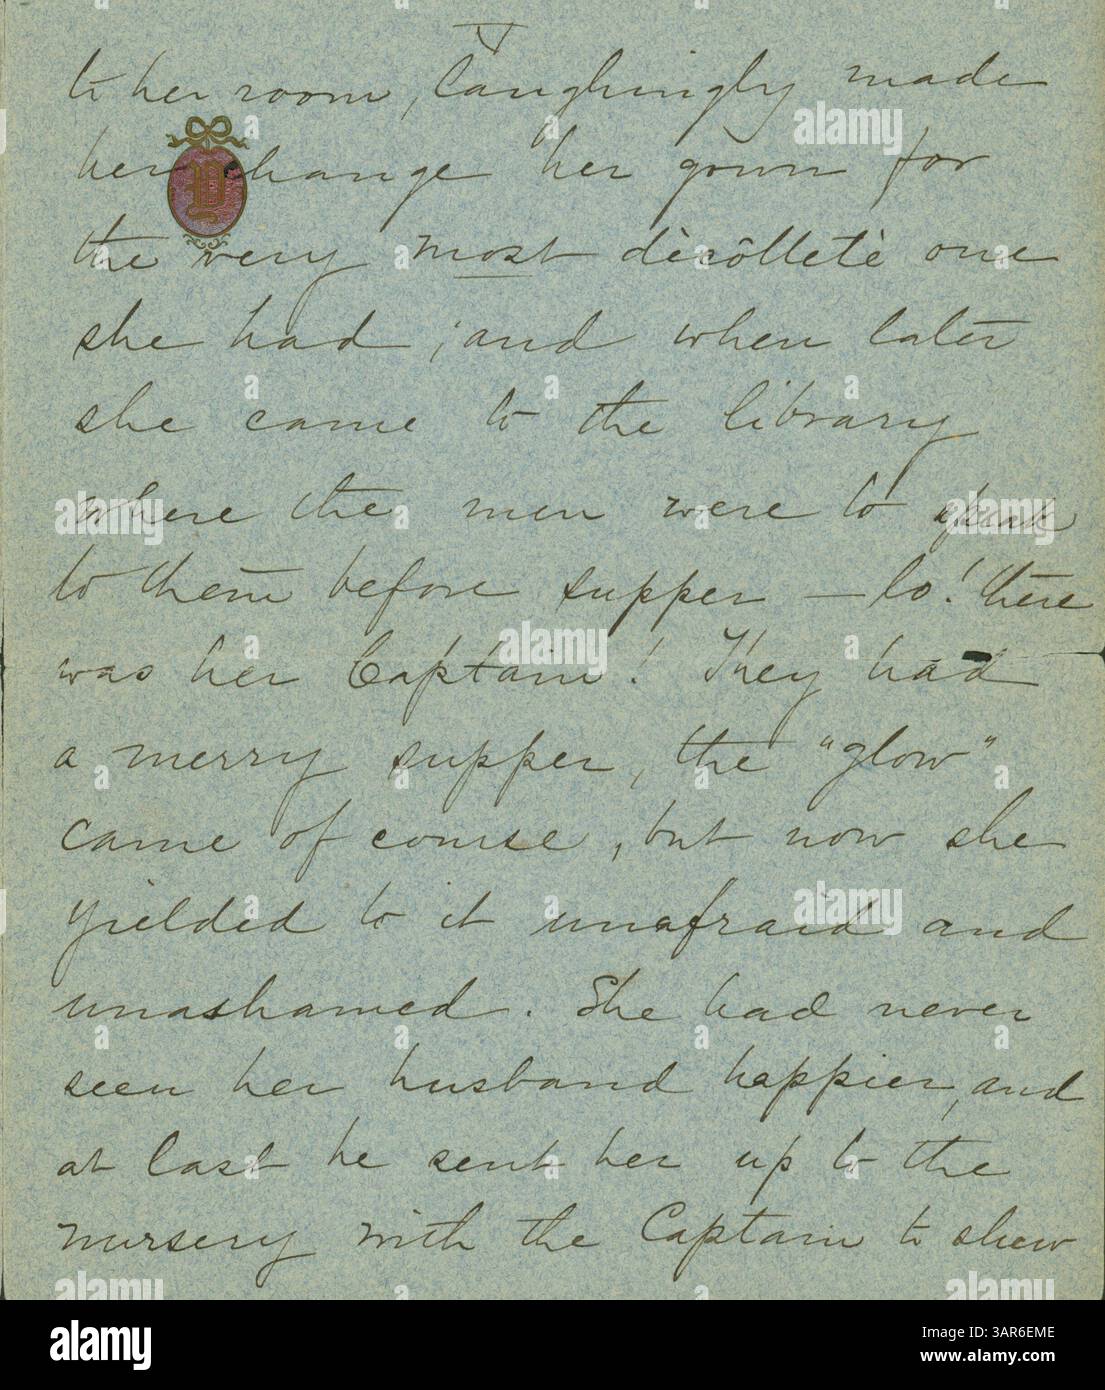 V
to her room, laughingly made
her change her gown for
the very most dècôlletè one
she had; and when later
she came to the library
where the men were to speak
to them before supper — lo! there
was her Captain! They had
a merry supper, the "glow"
came of course, but now she
yielded to it unafraid and
unashamed. She had never
seen her husband happier, and
at last he sent her up to the
nursery with the Captain to show
alamy
Image ID: 3AR6EME
www.alamy.com